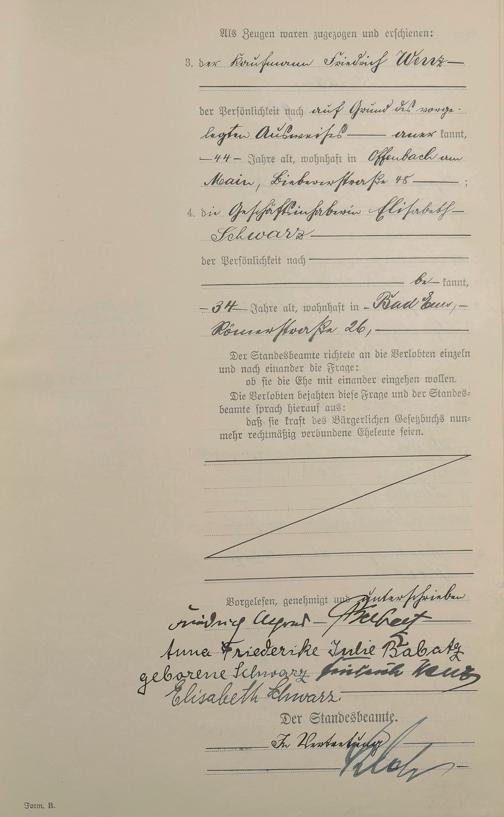 Als Zeugen waren zugezogen und erschienen:
3. der Kaufmann Friedrich Wenz
der Persönlichkeit nach auf Grund des vorge-
legten Ausweises — aner kannt,
— 44 — Jahre alt, wohnhaft in Offenbach am
Main, Biebererstraße 48 — ;
4. die Geschäftsinhaberin Elisabeth
Schwarz
der Persönlichkeit nach
be— kannt,
— 34 — Jahre alt, wohnhaft in Bad Ems, —
Römerstraße 26, —
Der Standesbeamte richtete an die Verlobten einzeln
und nach einander die Frage:
ob sie die Ehe mit einander eingehen wollen.
Die Verlobten bejahten diese Frage und der Standes-
beamte sprach hierauf aus:
daß sie kraft des Bürgerlichen Gesetzbuchs nun-
mehr rechtmäßig verbundene Eheleute seien.
Vorgelesen, genehmigt und unterschrieben
Friedrich
Anna Friederike Julie Babatz
geborene Schwarz Friedrich Wenz
Elisabeth Schwarz
Der Standesbeamte.
In Vertretung
Form. B.